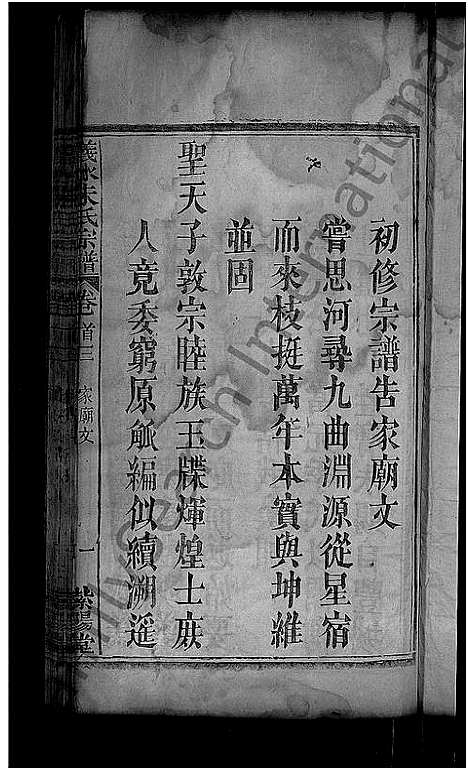 初修宗譜告家廟文
嘗思河尋九曲淵源從星宿
而來枝挺萬年本實與坤維
並固
聖天子敦宗睦族玉牒煇煌士庶
人竟委窮原觚編似續溯遥
義水朱氏宗譜 卷首三 家廟文 一 紫陽堂